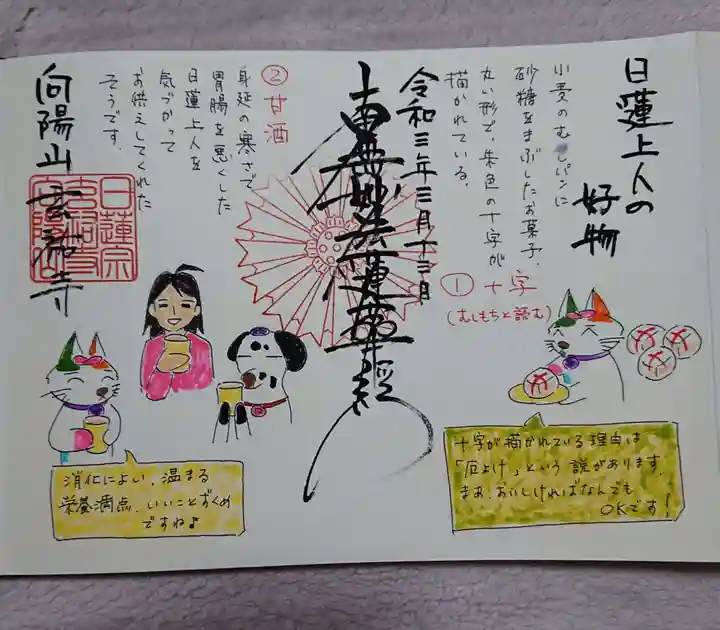 日蓮上人の
好物
小麦のむしパンに
砂糖をまぶしたお菓子.
丸い形で、朱色の十字が
描かれている.
① 十字
(むしもちと読む)
十字が描かれている理由は
「厄よけ」という説があります.
まあ、おいしければなんでも
OKです!
令和三年三月十三日
南無妙法蓮華経
② 甘酒
身延の寒さで、
胃腸を悪くした
日蓮上人を
気づかって
お供えしてくれた
そうです.
消化によい、温まる
栄養満点、いいことずくめ
ですね♪
向陽山
日蓮宗